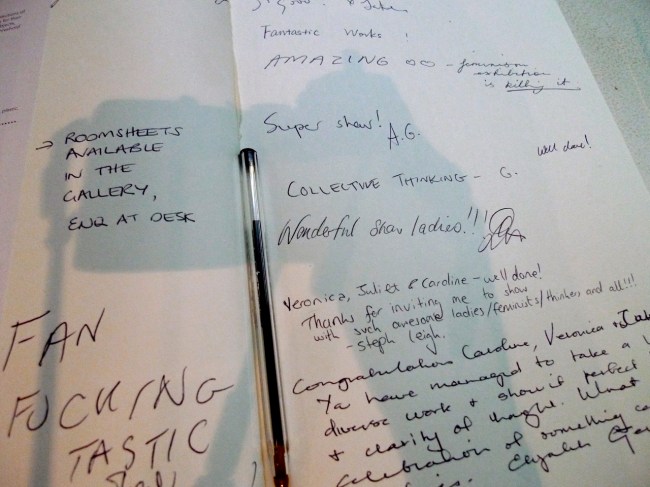 → ROOMSHEETS
AVAILABLE
IN THE
GALLERY,
ENQ AT DESK
FAN
FUCKING
TASTIC
Fantastic Works !
AMAZING
exhibition
is killing it
Super show! A.G.
well done!
COLLECTIVE THINKING - G.
Wonderful show ladies!!!
Veronica, Juliet & Caroline - well done!
Thanks for inviting me to show
with such awesome ladies/feminists/thinkers and all!!!
- Steph Leigh.
Congratulations Caroline, Veronica +
Ya have managed to take a
diverse work + show it perfect
+ clarity of thought. What
celebration of something
Elizabeth